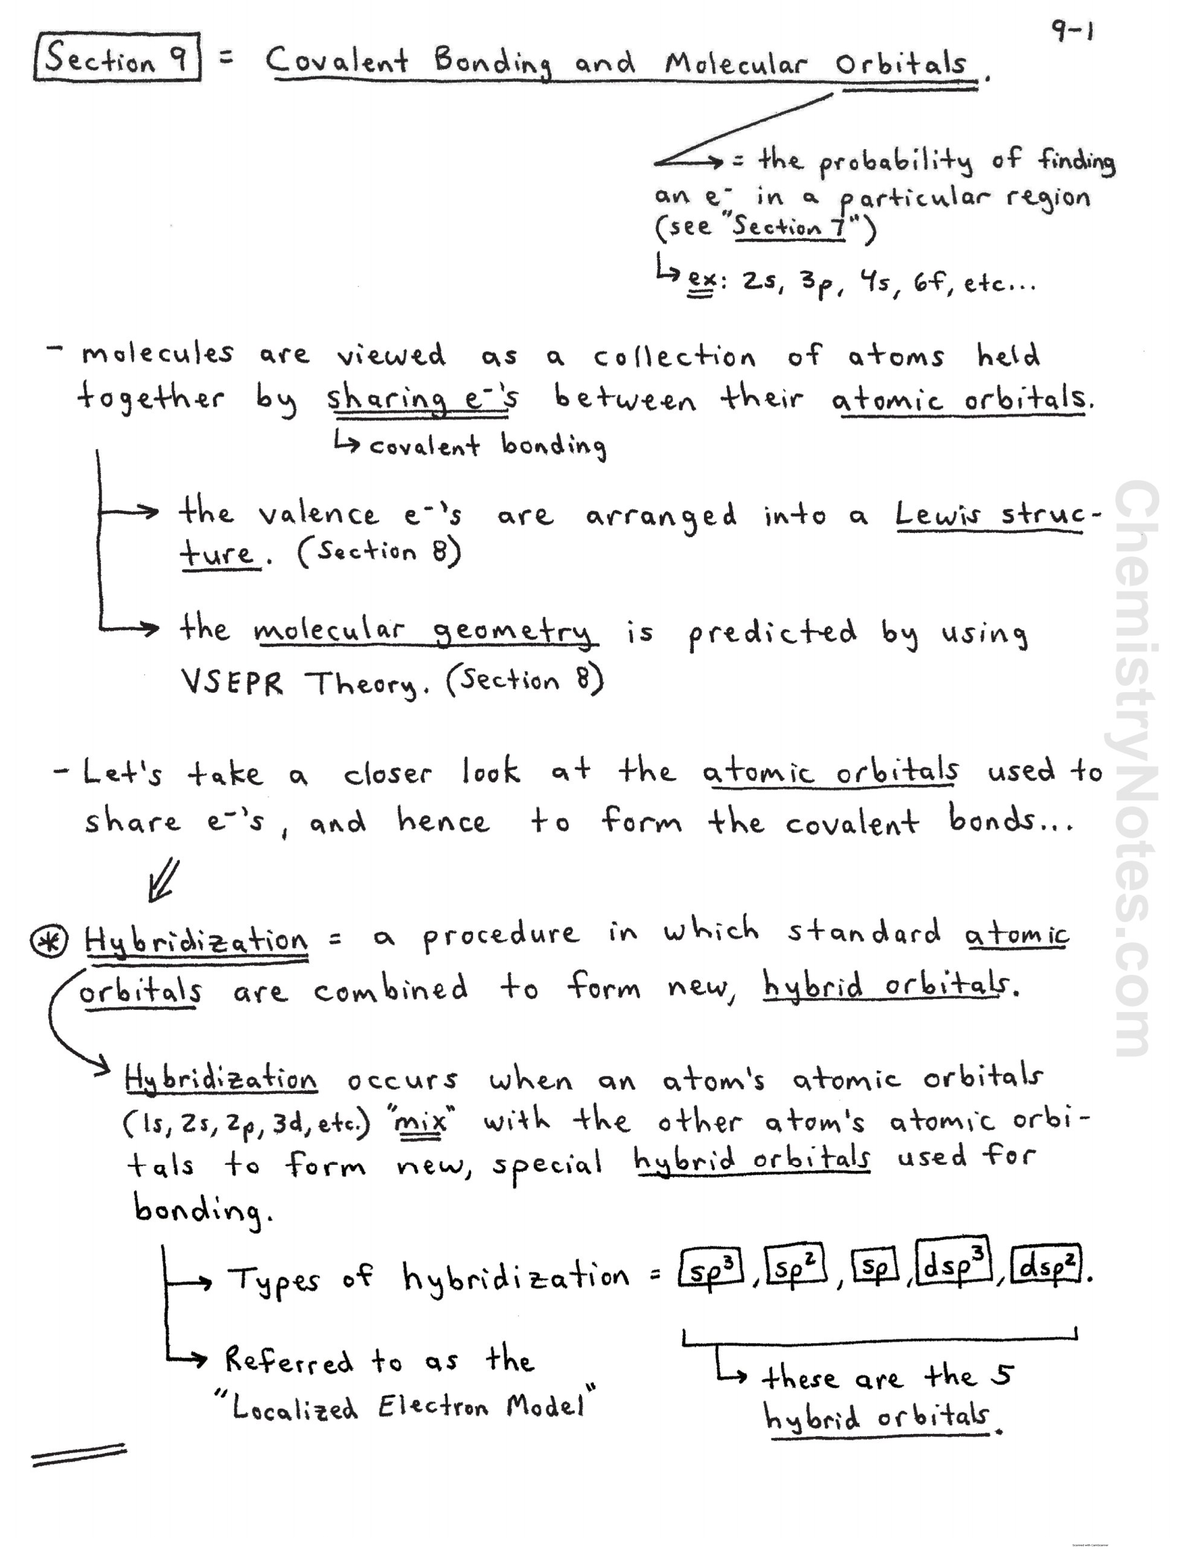 9-1
Section 9 = Covalent Bonding and Molecular Orbitals.
= the probability of finding
an e⁻ in a particular region
(see "Section 7")
ex: 2s, 3p, 4s, 6f, etc...
- molecules are viewed as a collection of atoms held
together by sharing e⁻'s between their atomic orbitals.
covalent bonding
the valence e⁻'s are arranged into a Lewis struc-
ture. (Section 8)
the molecular geometry is predicted by using
VSEPR Theory. (Section 8)
- Let's take a closer look at the atomic orbitals used to
share e⁻'s, and hence to form the covalent bonds...
* Hybridization = a procedure in which standard atomic
orbitals are combined to form new, hybrid orbitals.
Hybridization occurs when an atom's atomic orbitals
(1s, 2s, 2p, 3d, etc.) "mix" with the other atom's atomic orbi-
tals to form new, special hybrid orbitals used for
bonding.
Types of hybridization = sp³, sp², sp, dsp³, dsp².
Referred to as the
"Localized Electron Model"
these are the 5
hybrid orbitals.
ChemistryNotes.com